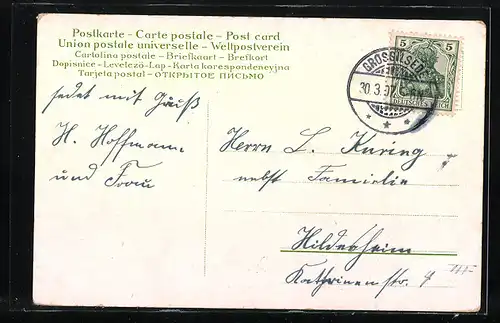 Postkarte - Carte postale - Post card
Union postale universelle - Weltpostverein
Cartolina postale - Briefkaart - Brefkort
Dopisnice - Levelező-Lap - Karta korespondencyjna
Tarjeta postal - ОТКРЫТОЕ ПИСЬМО
5 5
GROSSILSEDE
30.3.07.
DEUTSCHES
sedet mit Gruß
H. Hoffmann
und Frau
Herrn L. Kuring
nebst Familie
Hildesheim
Kathrinenstr. 7